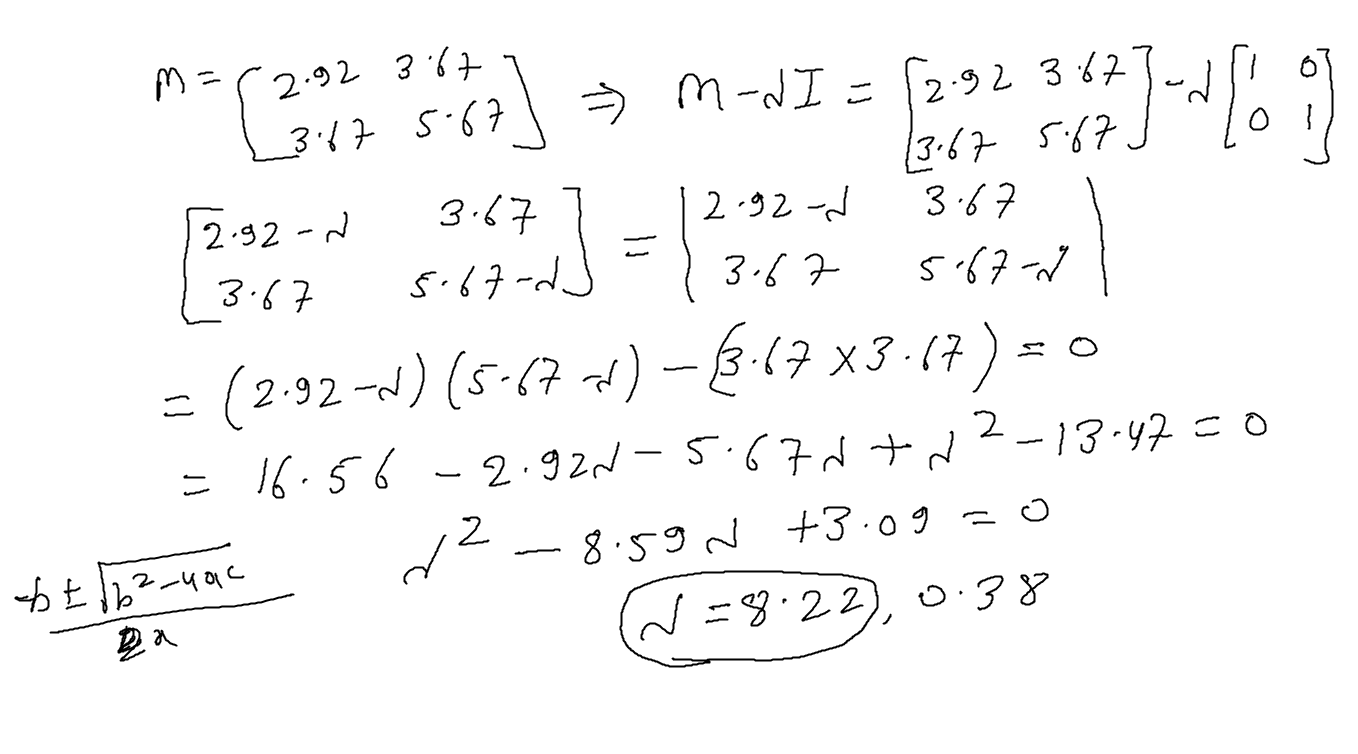 M = [2.92 3.67; 3.67 5.67] ⇒ M - λI = [2.92 3.67; 3.67 5.67] - λ[1 0; 0 1]
[2.92 - λ 3.67; 3.67 5.67 - λ] = |2.92 - λ 3.67; 3.67 5.67 - λ|
= (2.92 - λ) (5.67 - λ) - (3.67 × 3.67) = 0
= 16.56 - 2.92λ - 5.67λ + λ² - 13.47 = 0
λ² - 8.59λ + 3.09 = 0
(-b ± √(b² - 4ac)) / 2a
λ = 8.22, 0.38